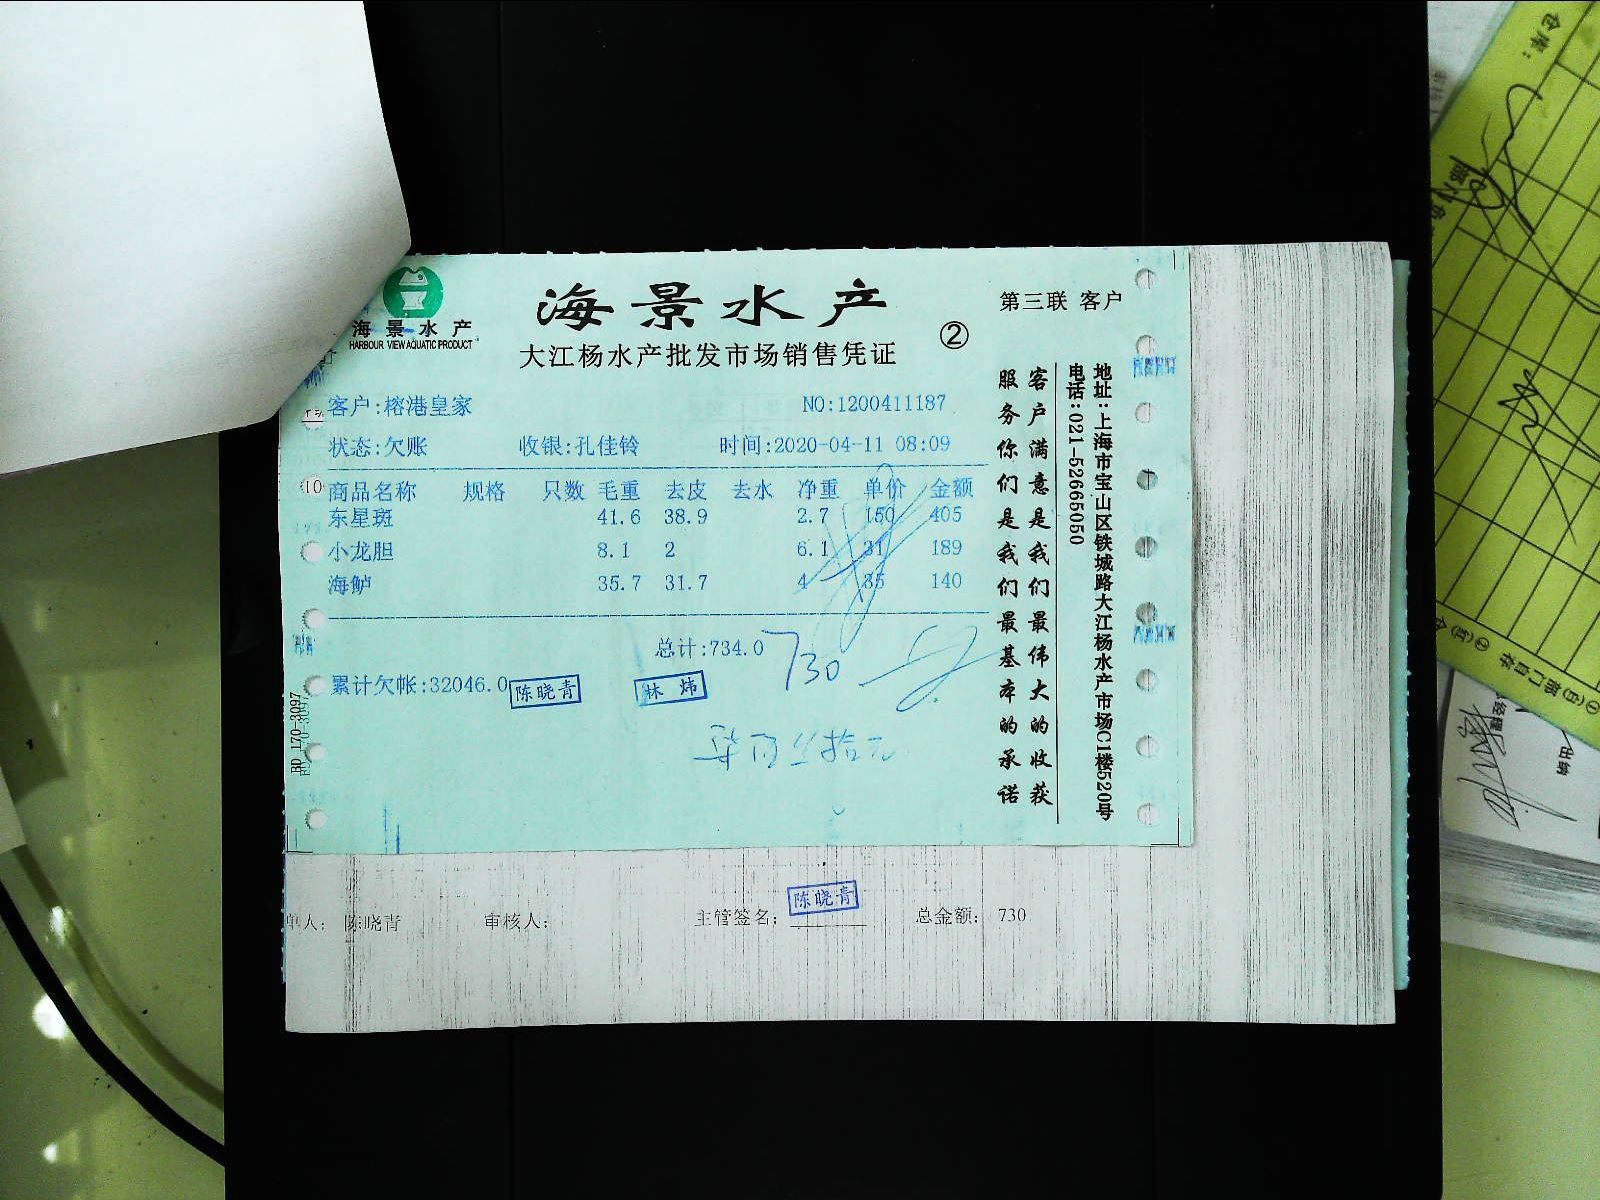 海景水产
HARBOUR VIEW AQUATIC PRODUCT
海景水产
大江杨水产批发市场销售凭证
②
第三联 客户
客户:榕港皇家 NO:1200411187
状态:欠账 收银:孔佳铃 时间:2020-04-11 08:09
商品名称 规格 只数 毛重 去皮 去水 净重 单价 金额
东星斑 41.6 38.9 2.7 150 405
小龙胆 8.1 2 6.1 31 189
海鲈 35.7 31.7 4 35 140
总计:734.0 730
累计欠帐:32046.0 陈晓青 林炜
客户满意是我们最伟大的收获
服务你们是我们最基本的承诺
地址:上海市宝山区铁城路大江杨水产市场C1楼520号
电话:021-52665050
BD 170-3097
单人: 陈晓青 审核人: 主管签名: 陈晓青 总金额: 730
仓库: